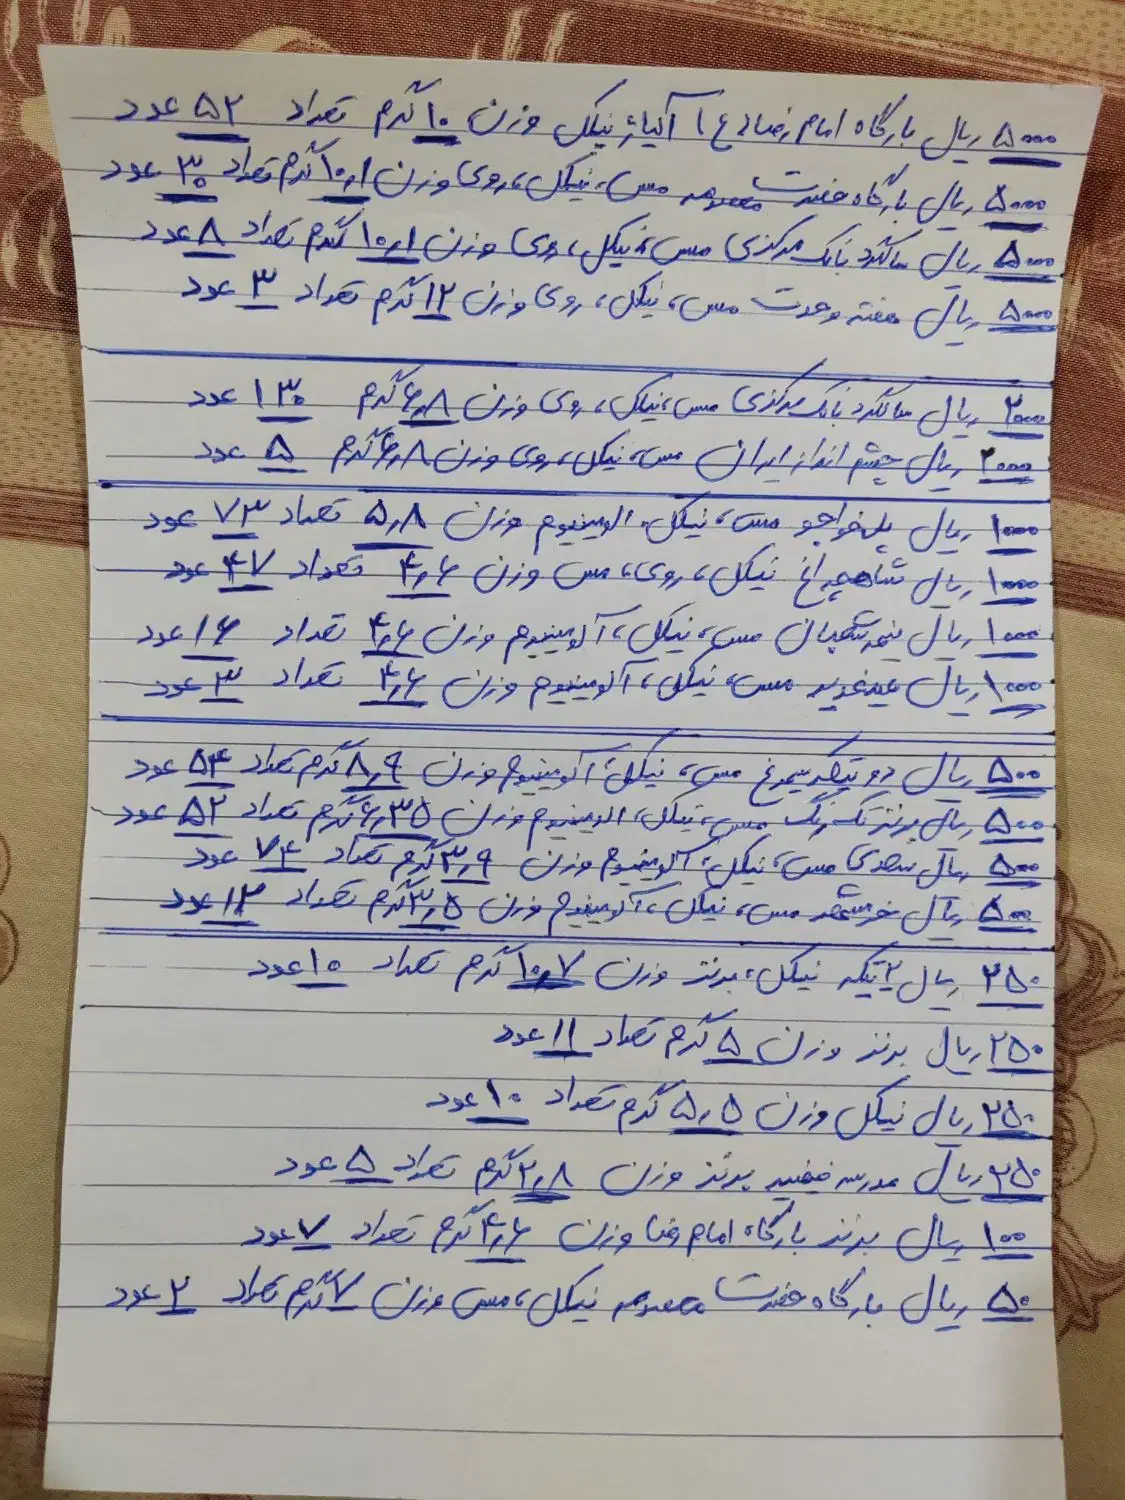 ۵۰۰۰ ریال بارگاه امام رضا (ع) آلیاژ نیکل وزن ۱۰ گرم تعداد ۵۲ عدد
۵۰۰۰ ریال بارگاه حضرت معصومه مس، نیکل، روی وزن ۱۰٫۱ گرم تعداد ۳۰ عدد
۵۰۰۰ ریال سالگرد بانک مرکزی مس، نیکل، روی وزن ۱۰٫۱ گرم تعداد ۸ عدد
۵۰۰۰ ریال هفته وحدت مس، نیکل، روی وزن ۱۲ گرم تعداد ۳ عدد
۲۰۰۰ ریال سالگرد بانک مرکزی مس، نیکل، روی وزن ۶٫۸ گرم ۱۳۰ عدد
۲۰۰۰ ریال چشم انداز ایران مس، نیکل، روی وزن ۶٫۸ گرم ۵ عدد
۱۰۰۰ ریال پل خواجو مس، نیکل، الومینیوم وزن ۵٫۸ تعداد ۷۳ عدد
۱۰۰۰ ریال شاهچراغ نیکل، روی، مس وزن ۴٫۶ تعداد ۴۷ عدد
۱۰۰۰ ریال نیمه شعبان مس، نیکل، آلومینیوم وزن ۴٫۶ تعداد ۱۶ عدد
۱۰۰۰ ریال عید غدیر مس، نیکل، آلومینیوم وزن ۴٫۶ تعداد ۳ عدد
۵۰۰ ریال دو تیکه سیمرغ مس، نیکل، آلومینیوم وزن ۸٫۹ گرم تعداد ۵۴ عدد
۵۰۰ ریال برنز تک رنگ مس، نیکل، الومینیوم وزن ۶٫۳۵ گرم تعداد ۵۲ عدد
۵۰۰ ریال سعدی مس، نیکل، آلومینیوم وزن ۳٫۹ گرم تعداد ۷۴ عدد
۵۰۰ ریال خرمشهر مس، نیکل، آلومینیوم وزن ۳٫۵ گرم تعداد ۱۲ عدد
۲۵۰ ریال ۲ تیکه نیکل، برنز وزن ۱۰٫۷ گرم تعداد ۱۰ عدد
۲۵۰ ریال برنز وزن ۵ گرم تعداد ۱۱ عدد
۲۵۰ ریال نیکل وزن ۵٫۵ گرم تعداد ۱۰ عدد
۲۵۰ ریال مدرسه فیضیه برنز وزن ۲٫۸ گرم تعداد ۵ عدد
۱۰۰ ریال برنز بارگاه امام رضا وزن ۴٫۶ گرم تعداد ۷ عدد
۵۰ ریال بارگاه حضرت معصومه نیکل، مس وزن ۷ گرم تعداد ۲ عدد